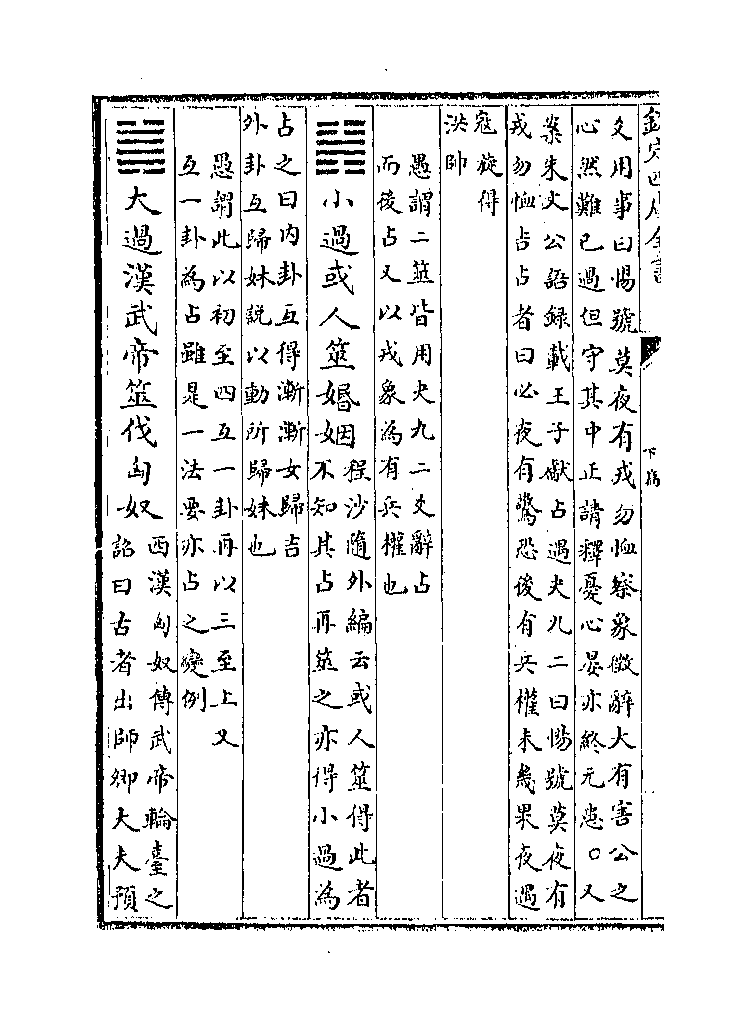 欽定四庫全書
下篇
爻用事曰惕號莫夜有戎勿恤察象徴辭大有害公之
心然難已過但守其中正請釋憂心晏亦終无患○又
案朱文公語録載王子獻占遇夬九二曰惕號莫夜有
戎勿恤吉占者曰必夜有驚恐後有兵權未幾果夜遇
寇旋得
洪帥
愚謂二筮皆用夬九二爻辭占
而後占又以戎象為有兵權也
小過或人筮婚姻
程沙隨外編云或人筮得此者
不知其占再筮之亦得小過為
占之曰内卦互得漸漸女歸吉
外卦互歸妹説以動所歸妹也
愚謂此以初至四互一卦再以三至上又
互一卦為占雖是一法要亦占之變例
大過漢武帝筮伐匈奴
西漢匈奴傳武帝輪臺之
詔曰古者出師卿大夫預